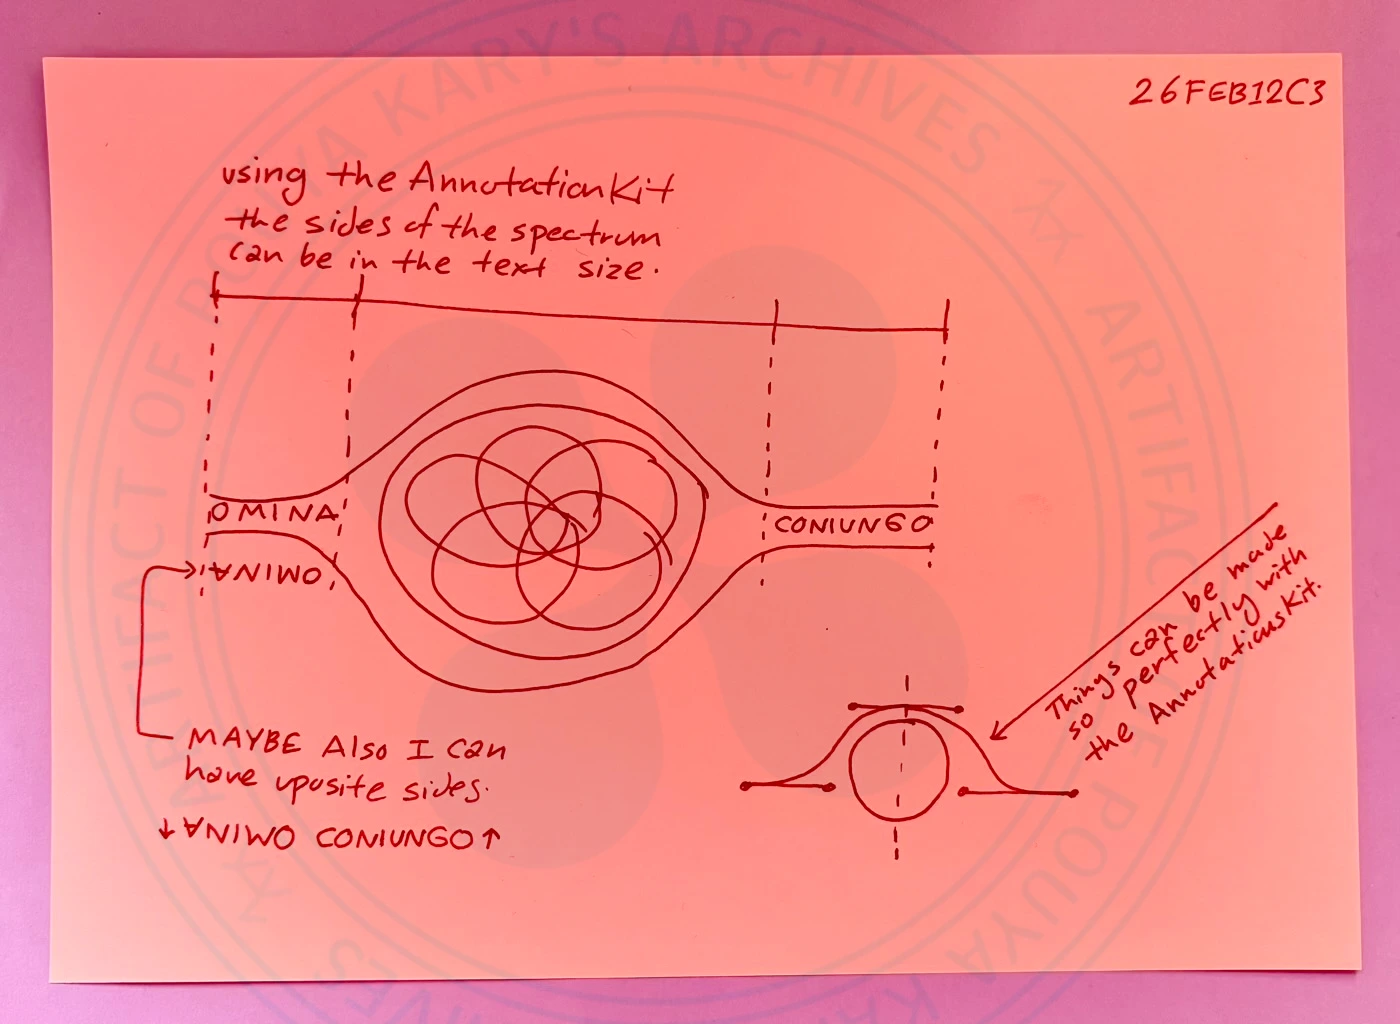 26FEB12C3
using the AnnotationKit
the sides of the spectrum
can be in the text size.
OMINA
CONIUNGO
OMINA
MAYBE Also I can
have uposite sides.
↓ OMINA CONIUNGO ↑
Things can be made
so perfectly with
the AnnotationsKit.
ARTIFACT OF POUYA KARY'S ARCHIVES
ARTIFACT OF POUYA KARY'S